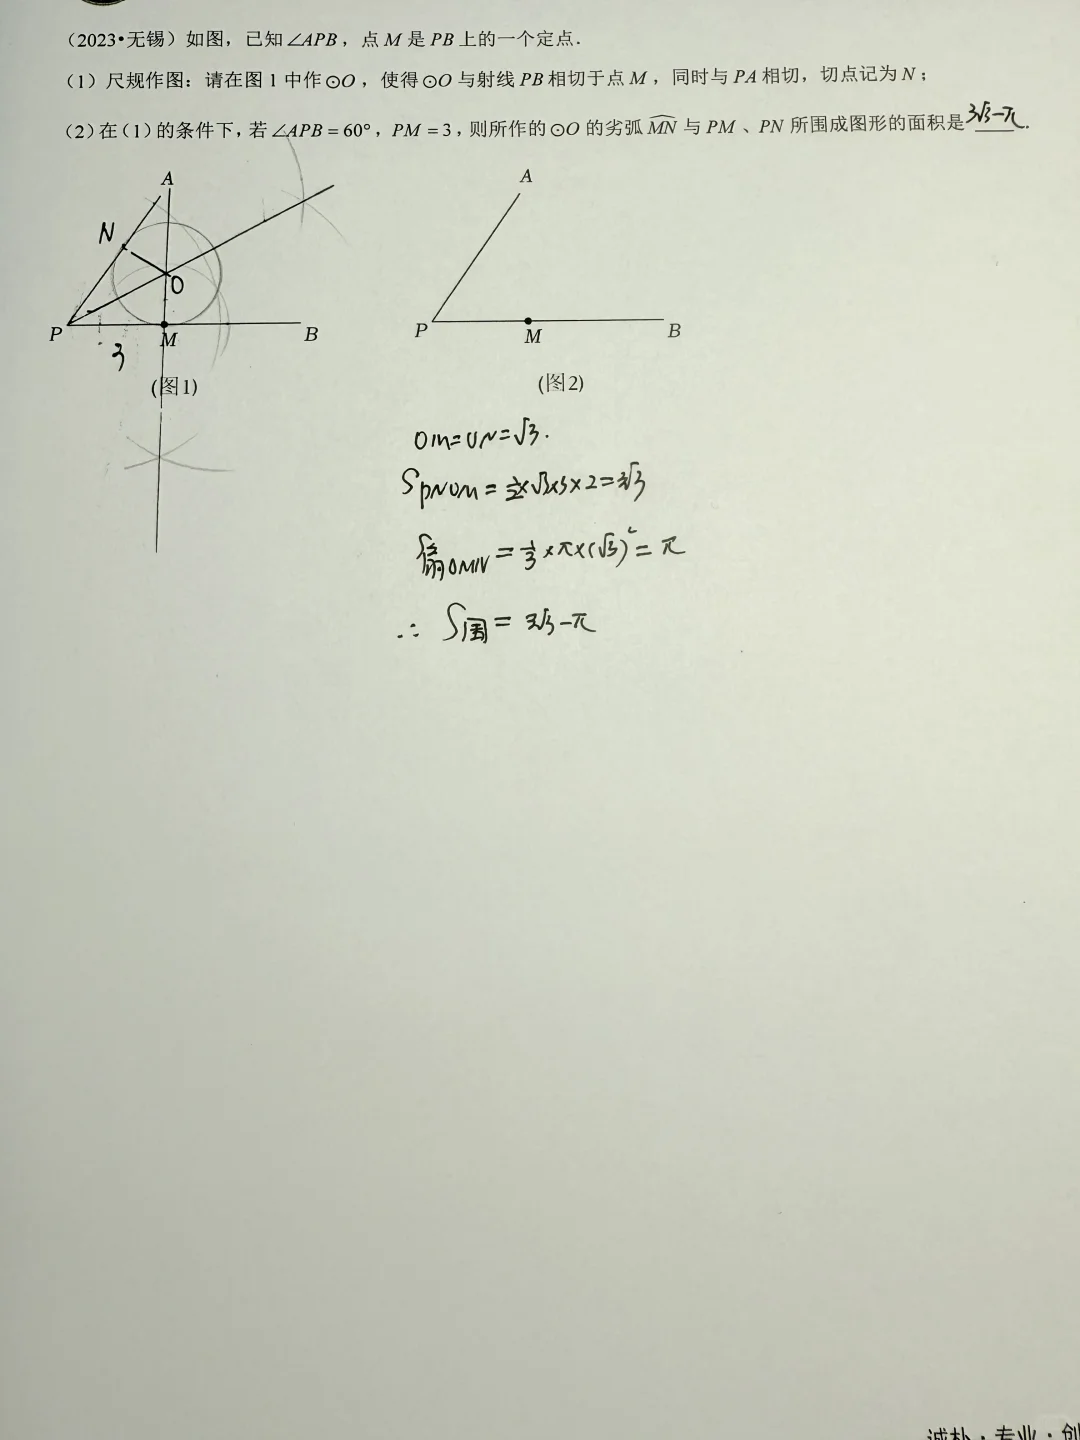 （2023•无锡）如图，已知∠APB，点 M 是 PB 上的一个定点．
（1）尺规作图：请在图 1 中作⊙O，使得⊙O 与射线 PB 相切于点 M，同时与 PA 相切，切点记为 N；
（2）在（1）的条件下，若∠APB=60°，PM=3，则所作的⊙O 的劣弧 MN 与 PM、PN 所围成图形的面积是 3√3-π．
A
N
O
P
M
B
3
(图1)
A
P
M
B
(图2)
OM=ON=√3.
S PNOM = ½×√3×3×2=3√3
S扇OMN = ⅓×π×(√3)²=π
∴ S围 = 3√3-π
诚朴·专业·创